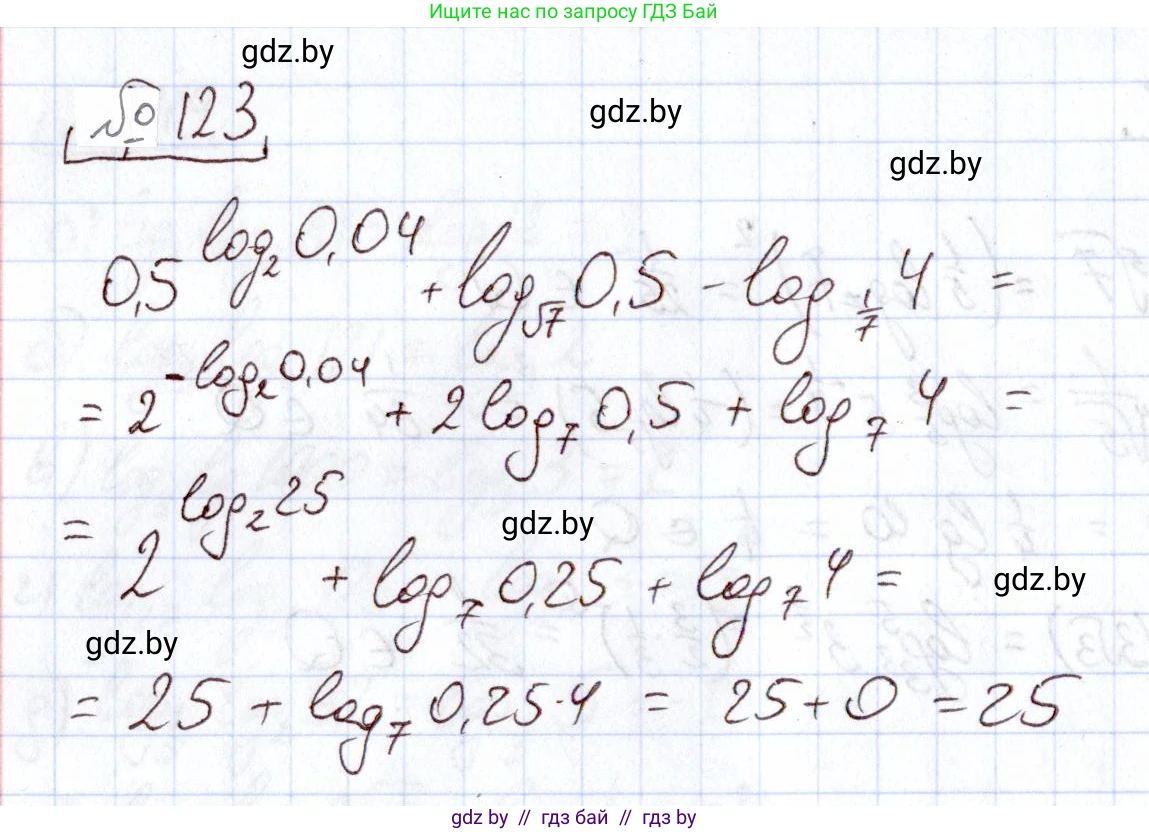 Ищите нас по запросу ГДЗ Бай
gdz.by
gdz.by
№ 123
gdz.by
0,5^{log₂ 0,04} + log_{√7} 0,5 - log_{1/7} 4 =
= 2^{-log₂ 0,04} + 2 log₇ 0,5 + log₇ 4 =
= 2^{log₂ 25} + log₇ 0,25 + log₇ 4 =
gdz.by
gdz.by
gdz.by
= 25 + log₇ 0,25·4 = 25 + 0 = 25
gdz.by // гдз бай // гдз by